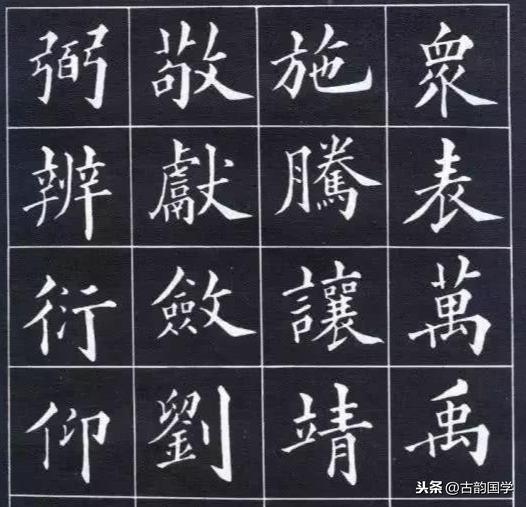 衆表萬禹
施騰讓靖
敬獻斂劉
弼辨衍仰
头条@古韵国学